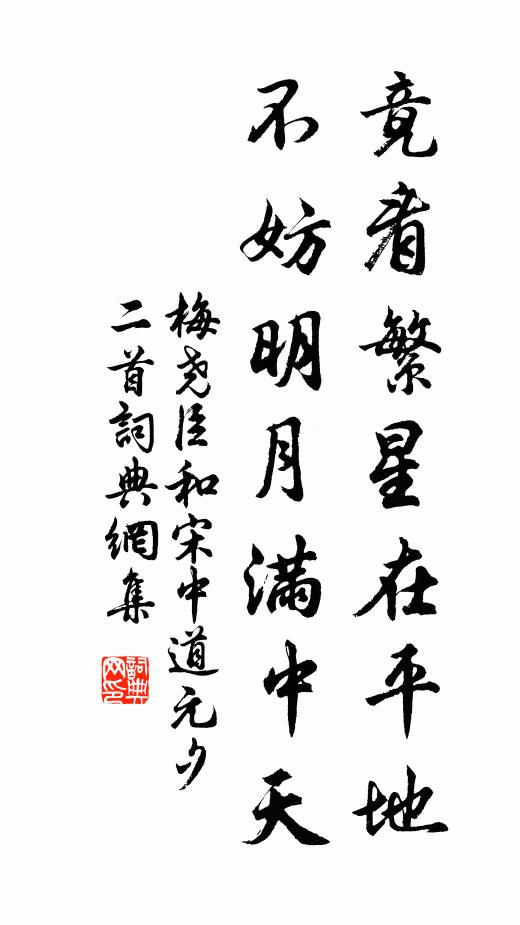 竟看繁星在平地
不妨明月滿中天
梅堯臣和宋中道元夕
二首詞典網集
詞典网印